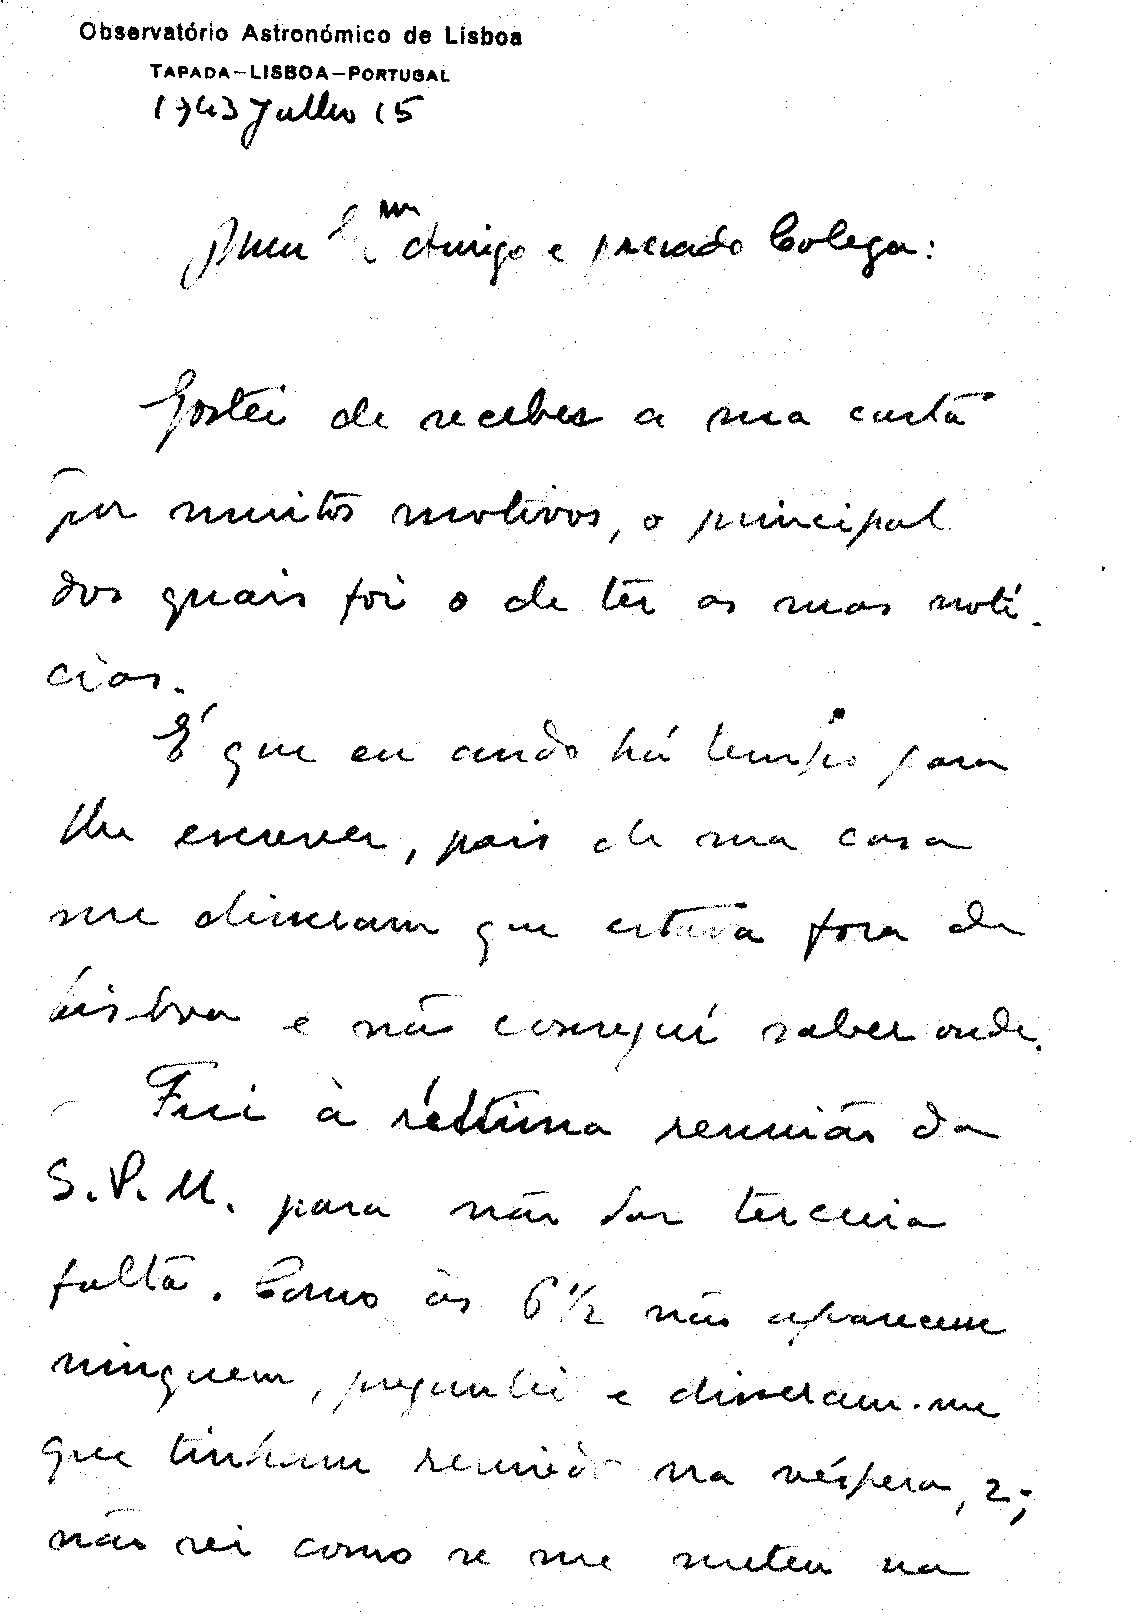 Observatório Astronómico de Lisboa
TAPADA-LISBOA-PORTUGAL
1943 Julho 15
Meu Exmo Amigo e prezado Colega:
Gostei de receber a sua carta
por muitos motivos, o principal
dos quais foi o de ter as suas notí-
cias.
É que eu ando há tempo para
lhe escrever, pois de sua casa
me disseram que estava fora de
Lisboa e não conseguí saber onde.
Fui à séttima reunião da
S.P.M. para não dar terceira
falta. Como às 6 1/2 não aparecem
ninguem, preguntei e disseram-me
que tinham reunido na véspera, 2;
não sei como se me meteu na